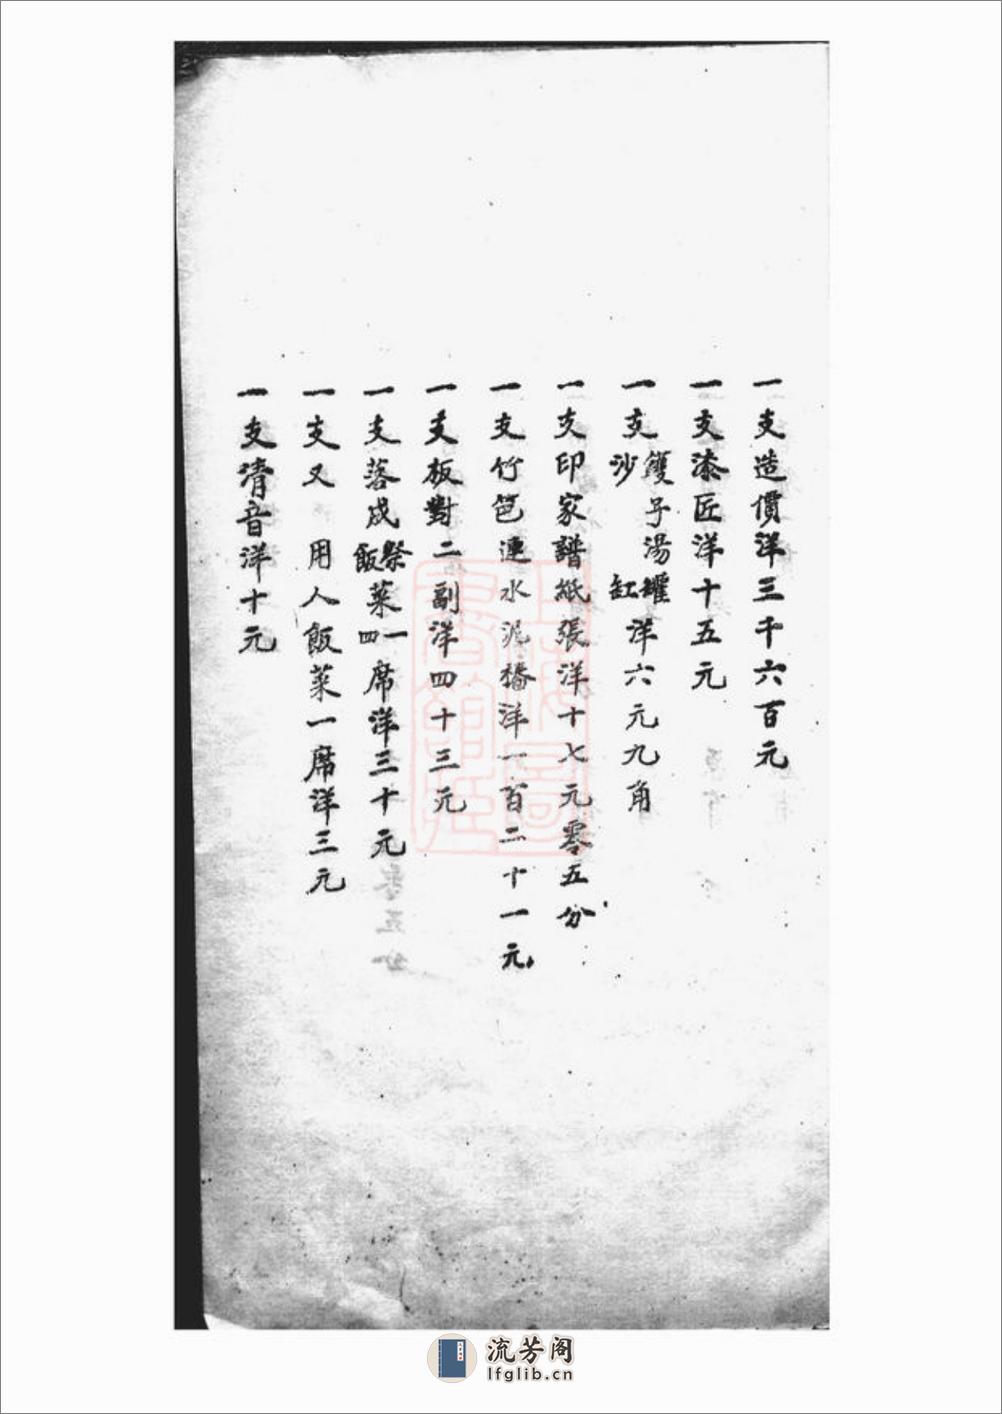 一支造價洋三千六百元
一支漆匠洋十五元
一支鑊子湯罐沙缸洋六元九角
一支印家譜紙張洋十七元零五分
一支竹笆連水泥牆洋一百二十一元
一支板對二副洋四十三元
一支落成祭菜一飯四席洋三十元
一支又 用人飯菜一席洋三元
一支清音洋十元
流芳阁
lfglib.cn